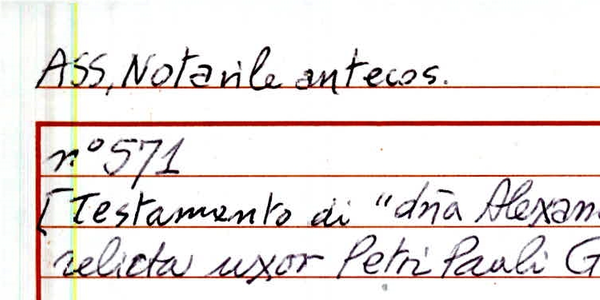 ASS, Notarile antecos.
n.º 571
[Testamento di "dña Alexan
relicta uxor Petri Pauli G